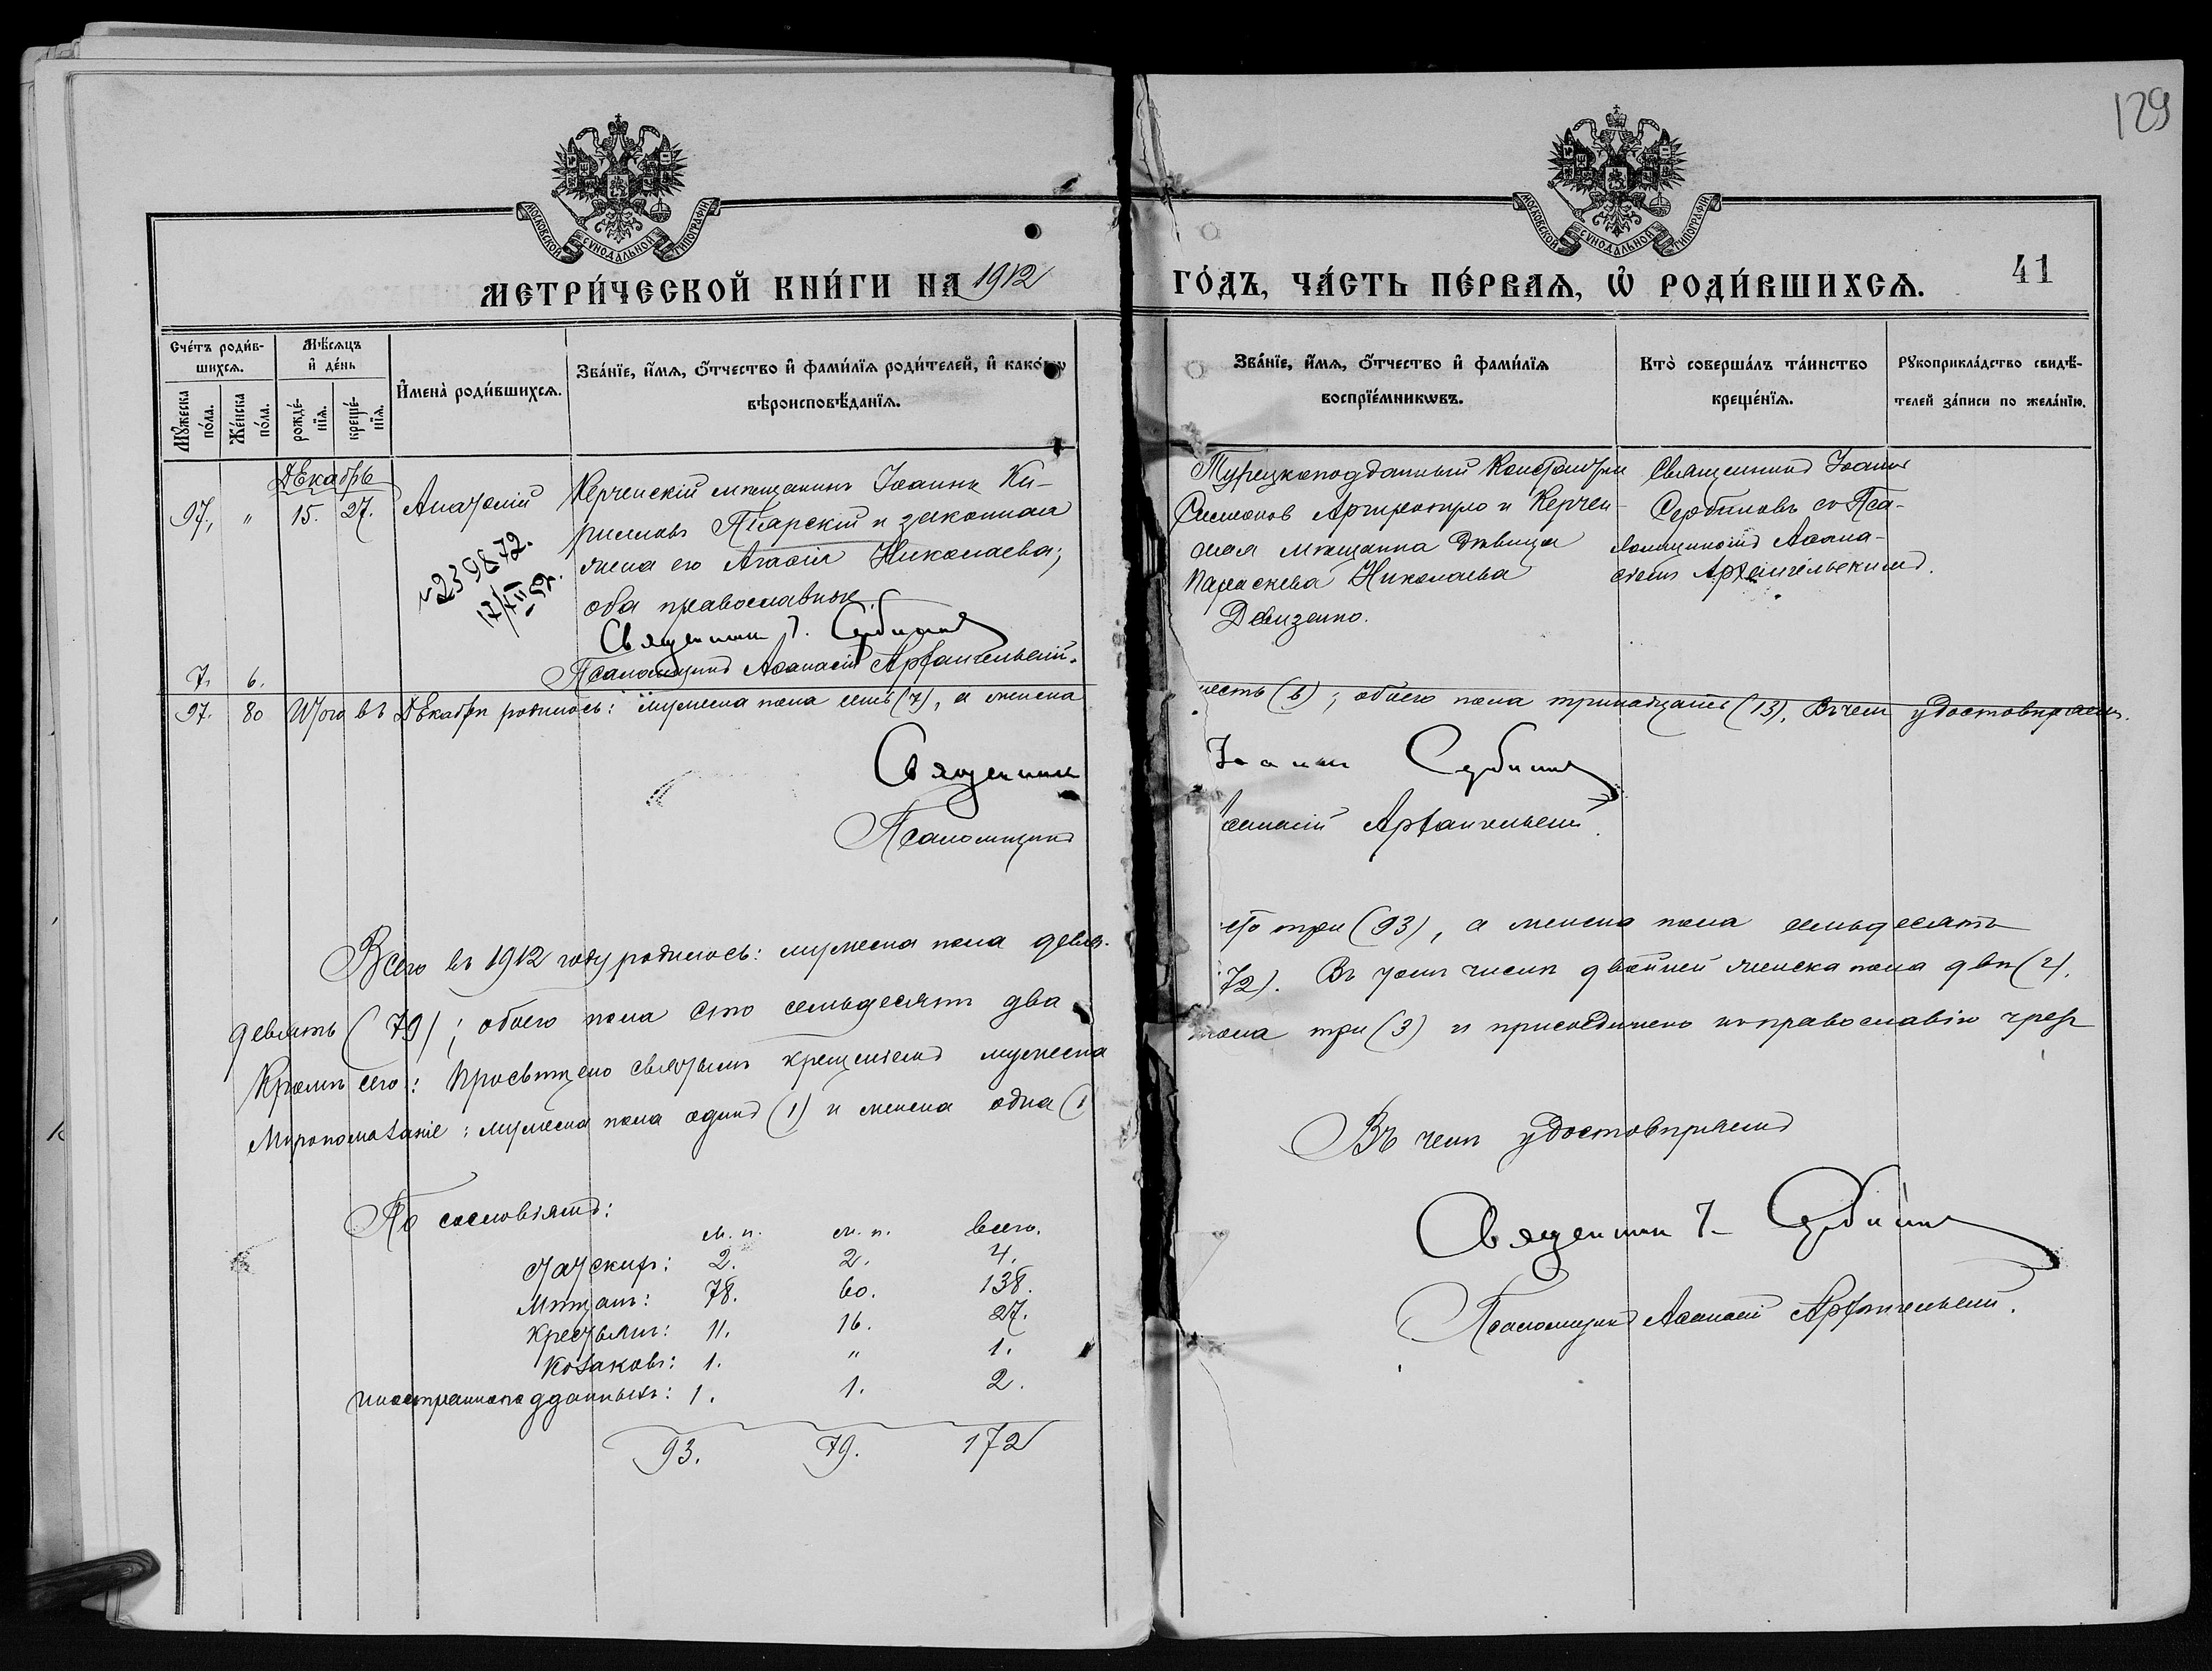 129
МОСКОВСКОЙ СУНОДАЛЬНОЙ ТИПОГРАФІИ
МОСКОВСКОЙ СУНОДАЛЬНОЙ ТИПОГРАФІИ
МЕТРИ́ЧЕСКОЙ КНИ́ГИ НА 1912
ГО́ДЪ, ЧА́СТЬ ПЕ́РВАЯ, Ѡ РОДИ́ВШИХСЯ.
41
Сче́тъ роди́в-
шихся.
Мѣ́сяцъ
и де́нь
Му́жеска по́ла.
Же́нска по́ла.
рожде́-нія.
креще́-нія.
Имена̀ роди́вшихся.
Зва́нїе, и́мя, о́тчество и фами́лїя роди́телей, и како́гѡ
вѣроисповѣ́данїя.
Зва́нїе, и́мя, о́тчество и фами́лїя
воспрїе́мникѡвъ.
Кто̀ соверша́лъ та́инство
креще́нїя.
Рукоприкла́дство свидѣ́-
телей за́писи по жела́нїю.
Декабрь
97. " 15. 27. Анатолій
№ 239872.
17/XII-51г.
Керченскій мѣщанинъ Іоаннъ Ки-
рилловъ Піарскій и законная
жена его Агаѳія Николаева;
оба православные.
Священникъ І. Сербиновъ
Псаломщикъ Аѳанасій Архангельскій.
Турецкоподданный Константинъ
Симеонов Аргиропуло и Керчен-
ская мѣщанка дѣвица
Параскева Николаева
Девизенко.
Священникъ Іоаннъ
Сербиновъ со Пса-
ломщикомъ Аѳана-
сіемъ Архангельскимъ.
7. 6.
97. 80 Итого въ Декабрѣ родилось: мужеска пола семь (7), а женска
шесть (6); обоего пола тринадцать (13). Въ чемъ удостовѣряемъ.
Священникъ
Іоаннъ Сербиновъ
Псаломщикъ
Аѳанасій Архангельскій.
Всего въ 1912 году родилось: мужеска пола девя-
сто три (93), а женска пола семьдесятъ
девять (79); обоего пола сто семьдесятъ два
172). Въ томъ числѣ двойней женска пола двѣ (2).
Кромѣ сего: Просвѣщено святымъ крещеніемъ мужеска
пола три (3) и присоединено къ православію чрезъ
Мѵропомазаніе: мужеска пола одинъ (1) и женска одна (1
Въ чемъ удостовѣряемъ
По сословіямъ:
м. п. ж. п. всего.
Статскихъ: 2. 2. 4.
Мѣщанъ: 78. 60. 138.
Крестьянъ: 11. 16. 27.
Козаковъ: 1. " 1.
Иностранноподданныхъ: 1. 1. 2.
93. 79. 172
Священникъ І. Сербиновъ
Псаломщикъ Аѳанасій Архангельскій.